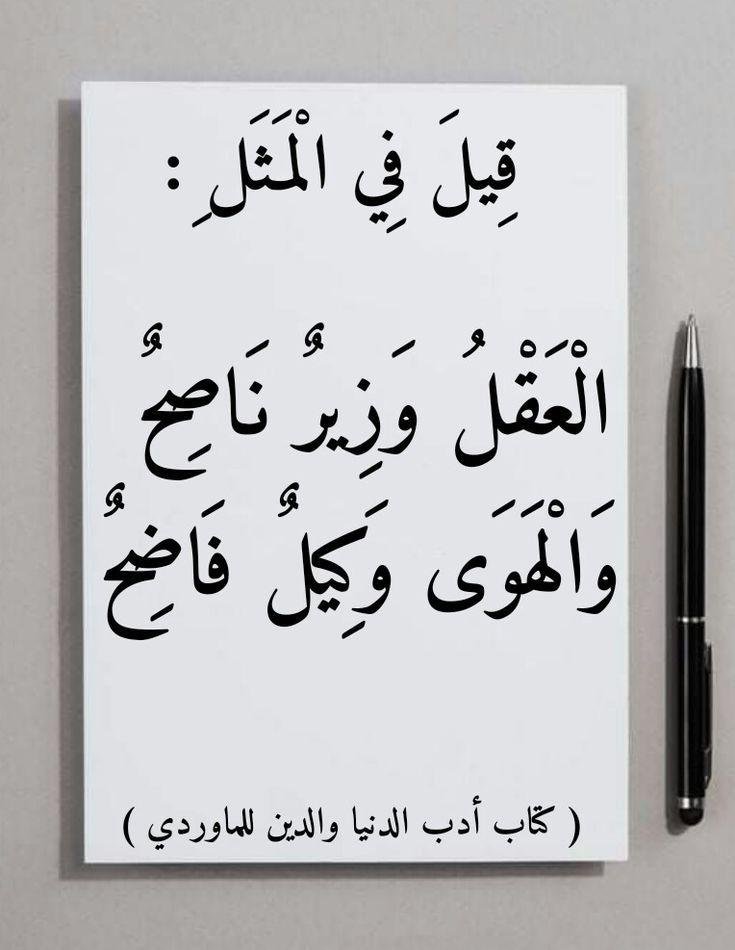 قِيلَ فِي الْمَثَلِ :
الْعَقْلُ وَزِيرٌ نَاصِحٌ
وَالْهَوَى وَكِيلٌ فَاضِحٌ
( كتاب أدب الدنيا والدين للماوردي )